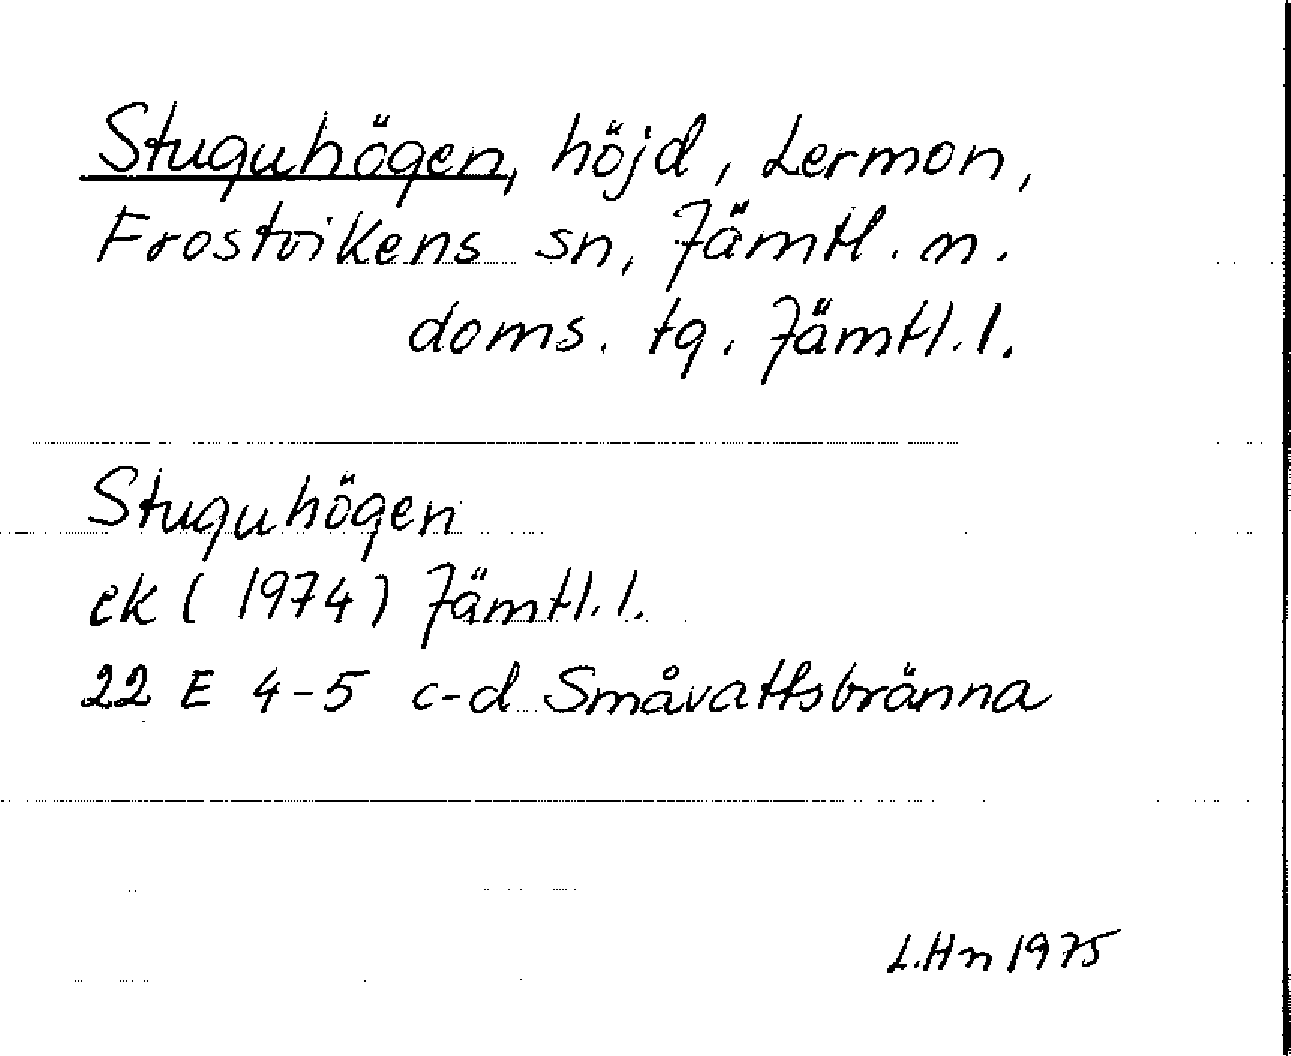 Stuguhögen, höjd, Lermon,
Frostvikens sn, Jämtl. n.
doms. tg. Jämtl. l.
Stuguhögen
ek (1974) Jämtl. l.
22 E 4-5 c-d Småvattsbränna
L.Hn 1975